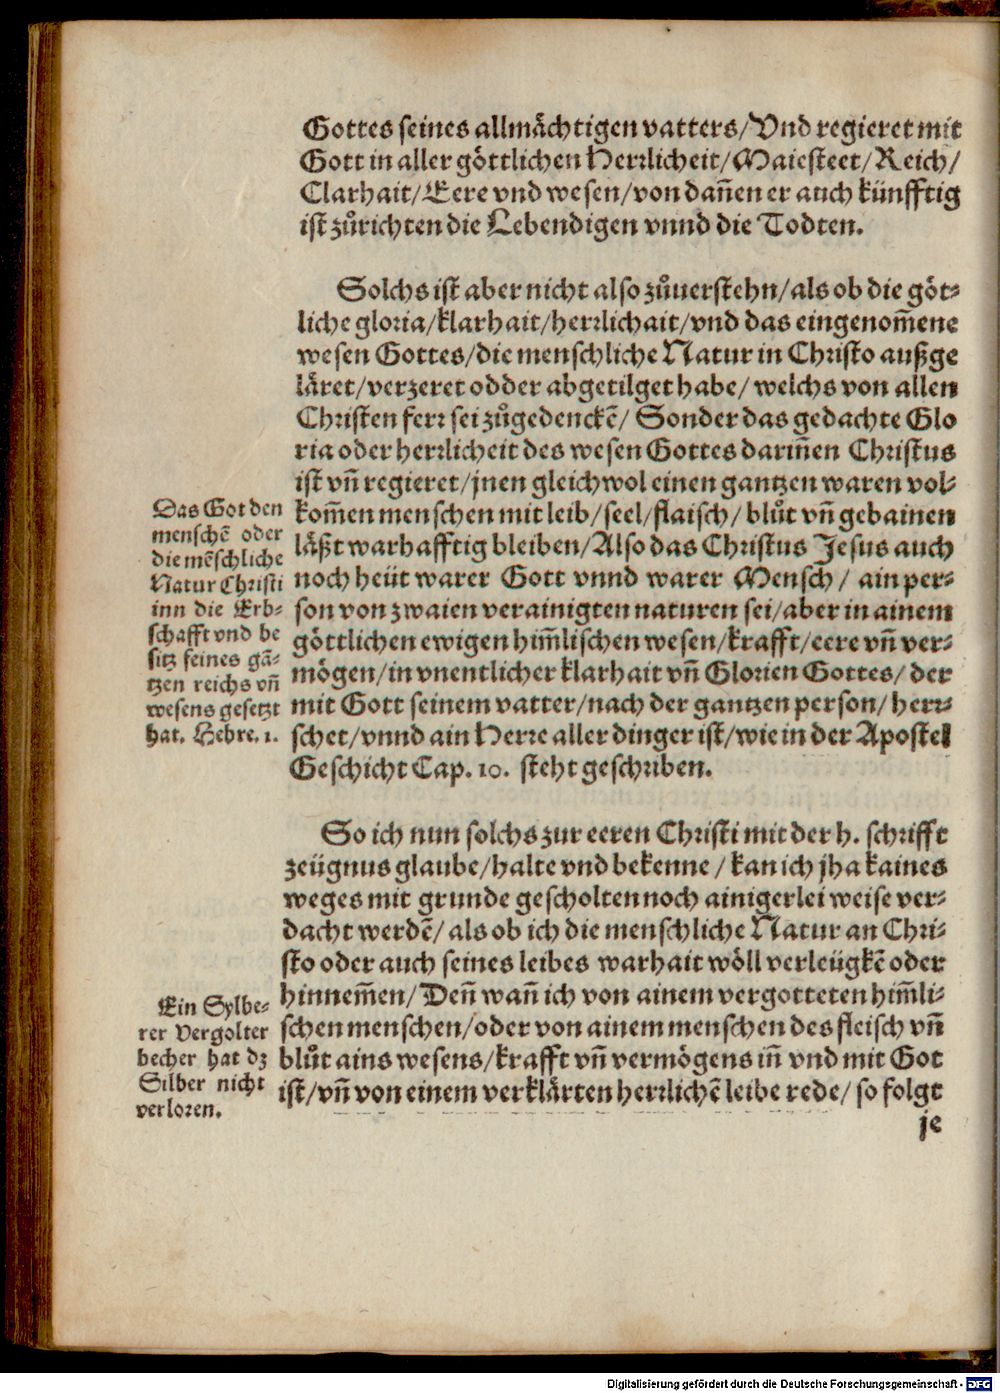 Gottes seines allmächtigen vatters/Vnd regieret mit
Gott in aller göttlichen Herrlicheit/Maiesteet/Reich/
Clarhait/Eere vnd wesen/von dañen er auch künfftig
ist zůrichten die Lebendigen vnnd die Todten.
Solchs ist aber nicht also zůuerstehn/als ob die göt-
liche gloria/klarhait/herrlichait/vnd das eingenom̃ene
wesen Gottes/die menschliche Natur in Christo außge
läret/verzeret odder abgetilget habe/ welchs von allen
Christen ferr sei zůgedenckẽ/ Sonder das gedachte Glo
ria oder herrlicheit des wesen Gottes darin̄en Christus
ist vñ regieret/jnen gleichwol einen gantzen waren vol-
kom̃en menschen mit leib/seel/flaisch/ blůt vñ gebainen
läßt warhafftig bleiben/Also das Christus Jesus auch
noch heüt warer Gott vnnd warer Mensch/ ain per-
son von zwaien verainigten naturen sei/aber in ainem
göttlichen ewigen him̃lischen wesen/krafft/eere vñ ver-
mögen/in vnentlicher klarhait vñ Glorien Gottes/ der
mit Gott seinem vatter/nach der gantzen person/ herr-
schet/vnnd ain Herre aller dinger ist/wie in der Apostel
Geschicht Cap. 10. steht geschriben.
Das Got den
menschẽ oder
die mẽschliche
Natur Christi
inn die Erb-
schafft vnd be
sitz seines gã-
tzen reichs vñ
wesens gesetzt
hat. Hebre. 1.
So ich nun solchs zur eeren Christi mit der h. schrifft
zeügnus glaube/halte vnd bekenne/ kan ich jha kaines
weges mit grunde gescholten noch ainigerlei weise ver-
dacht werdẽ/ als ob ich die menschliche Natur an Chri-
sto oder auch seines leibes warhait wöll verleügkẽ oder
hinnem̃en/ Deñ wañ ich von ainem vergotteten him̃li-
schen menschen/oder von ainem menschen des fleisch vñ
blůt ains wesens/krafft vñ vermögens iñ vnd mit Got
ist/vñ von einem verklärten herrlichẽ leibe rede/ so folgt
Ein Sylbe-
rer Vergolter
becher hat dz
Silber nicht
verloren.
je
Digitalisierung gefördert durch die Deutsche Forschungsgemeinschaft - DFG